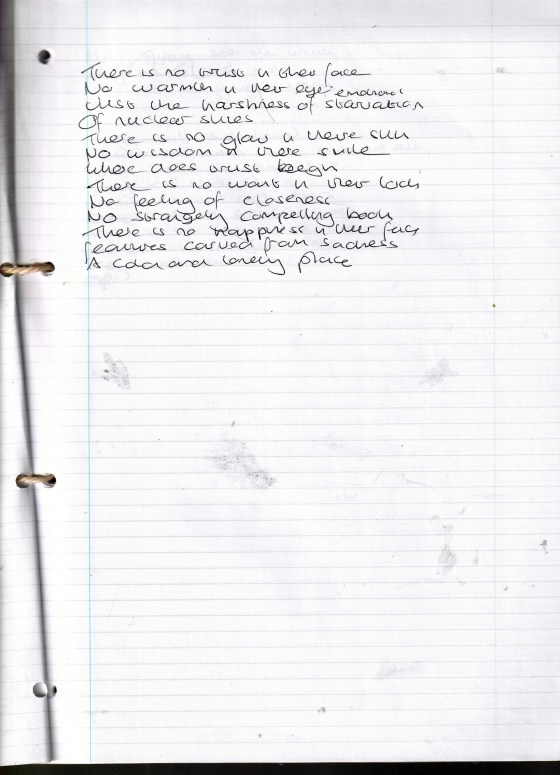 There is no trust in their face
No warmth in their eye: emotional
Just the harshness of starvation
Of nuclear skies
There is no glow in there skin
No wisdom in there smile
Where does trust begin
There is no want in their
No feeling of closeness
No strangely compelling book
There is no happiness in their face
features carved from sadness
A cold and lonely place